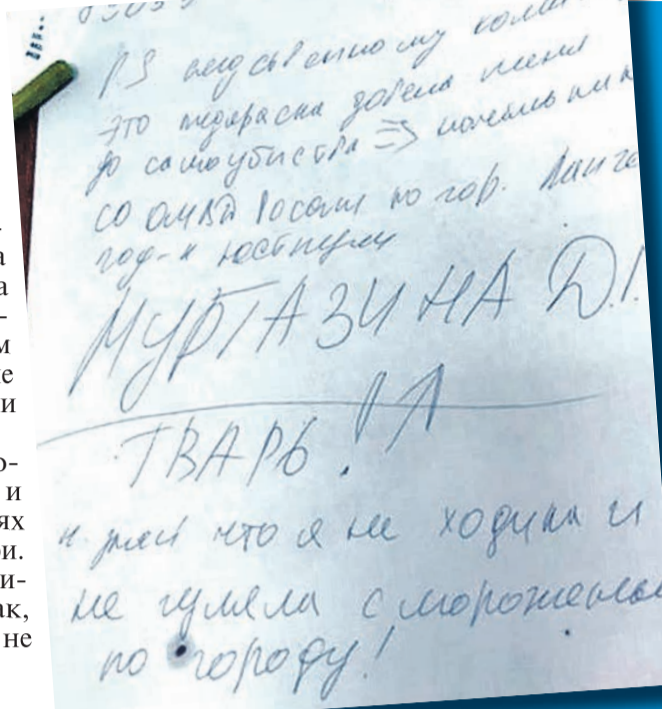 а
а
-
м
не
и
о-
и
ях
и.
и-
ак,
не
PS следственному
это довела меня
до самоубиства => начальник
СО ОМВД России по гор. Ланге
под-к юстиции
МУРТАЗИНА Д.!
ТВАРЬ!
и что я не ходила и
не гуляла с мороженым
по городу!